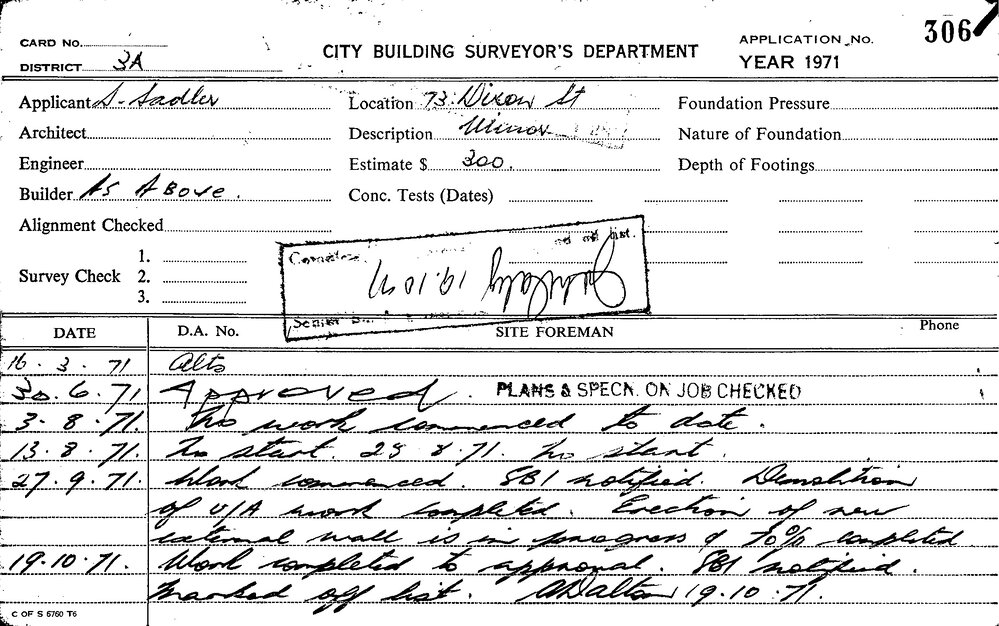 CARD No.
DISTRICT 3A
CITY BUILDING SURVEYOR'S DEPARTMENT
APPLICATION No. 306
YEAR 1971
Applicant S. Sadler Location 73 Dixon St Foundation Pressure
Architect Description Minor Nature of Foundation
Engineer Estimate $ 300. Depth of Footings
Builder As Above. Conc. Tests (Dates)
Alignment Checked
Survey Check 1.
2.
3.
19.10.71
Senior
DATE D.A. No. SITE FOREMAN Phone
16.3.71 Alts
30.6.71 Approved. PLANS & SPECN. ON JOB CHECKED
3.8.71. No work commenced to date.
13.8.71. No start. 28 8.71. No start.
27.9.71. Work commenced. SBI notified. Demolition
of U/A work completed. Erection of new
external wall is in progress & 70% completed
19.10.71. Work completed to approval. SBI notified.
Marked off list. ADalton 19.10.71.
C OF S 5760 T6